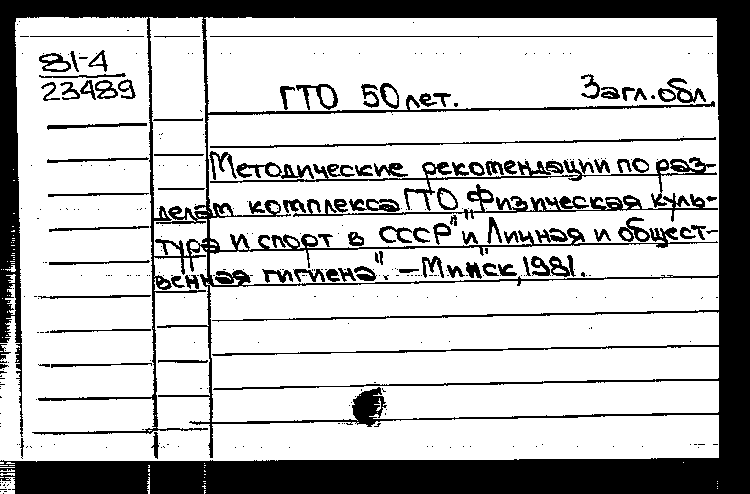 81-4
23489
ГТО 50 лет. Загл. обл.
Методические рекомендации по раз-
делам комплекса ГТО „Физическая куль-
тура и спорт в СССР" и „Личная и общест-
венная гигиена". – Минск, 1981.